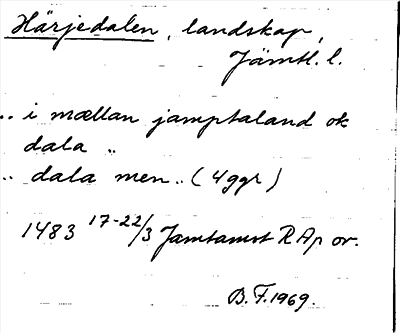 Härjedalen, landskap,
Jämtl. l.
.. i mællan jamptaland ok
dala ..
.. dala men .. (4 ggr)
1483 17-22/3 Jamtamot RAp or.
B. F. 1969.